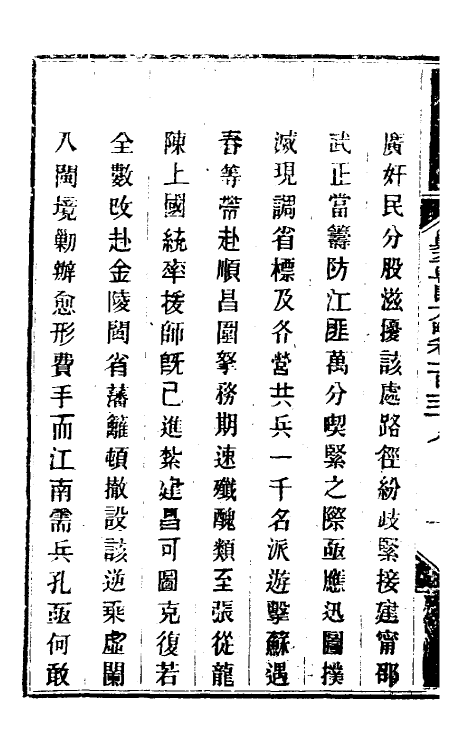 廣奸民分股滋擾該處路徑紛歧緊接建甯邵
武正當籌防江匪萬分喫緊之際亟應迅圖撲
滅現調省標及各營共兵一千名派遊擊蘇遇
春等帶赴順昌圍拏務期速殲醜類至張從龍
陳上國統率援師既已進紮建昌可圖克復若
全數改赴金陵閩省藩籬頓撤設該逆乘虛闌
入閩境勦辦愈形費手而江南需兵孔亟何敢